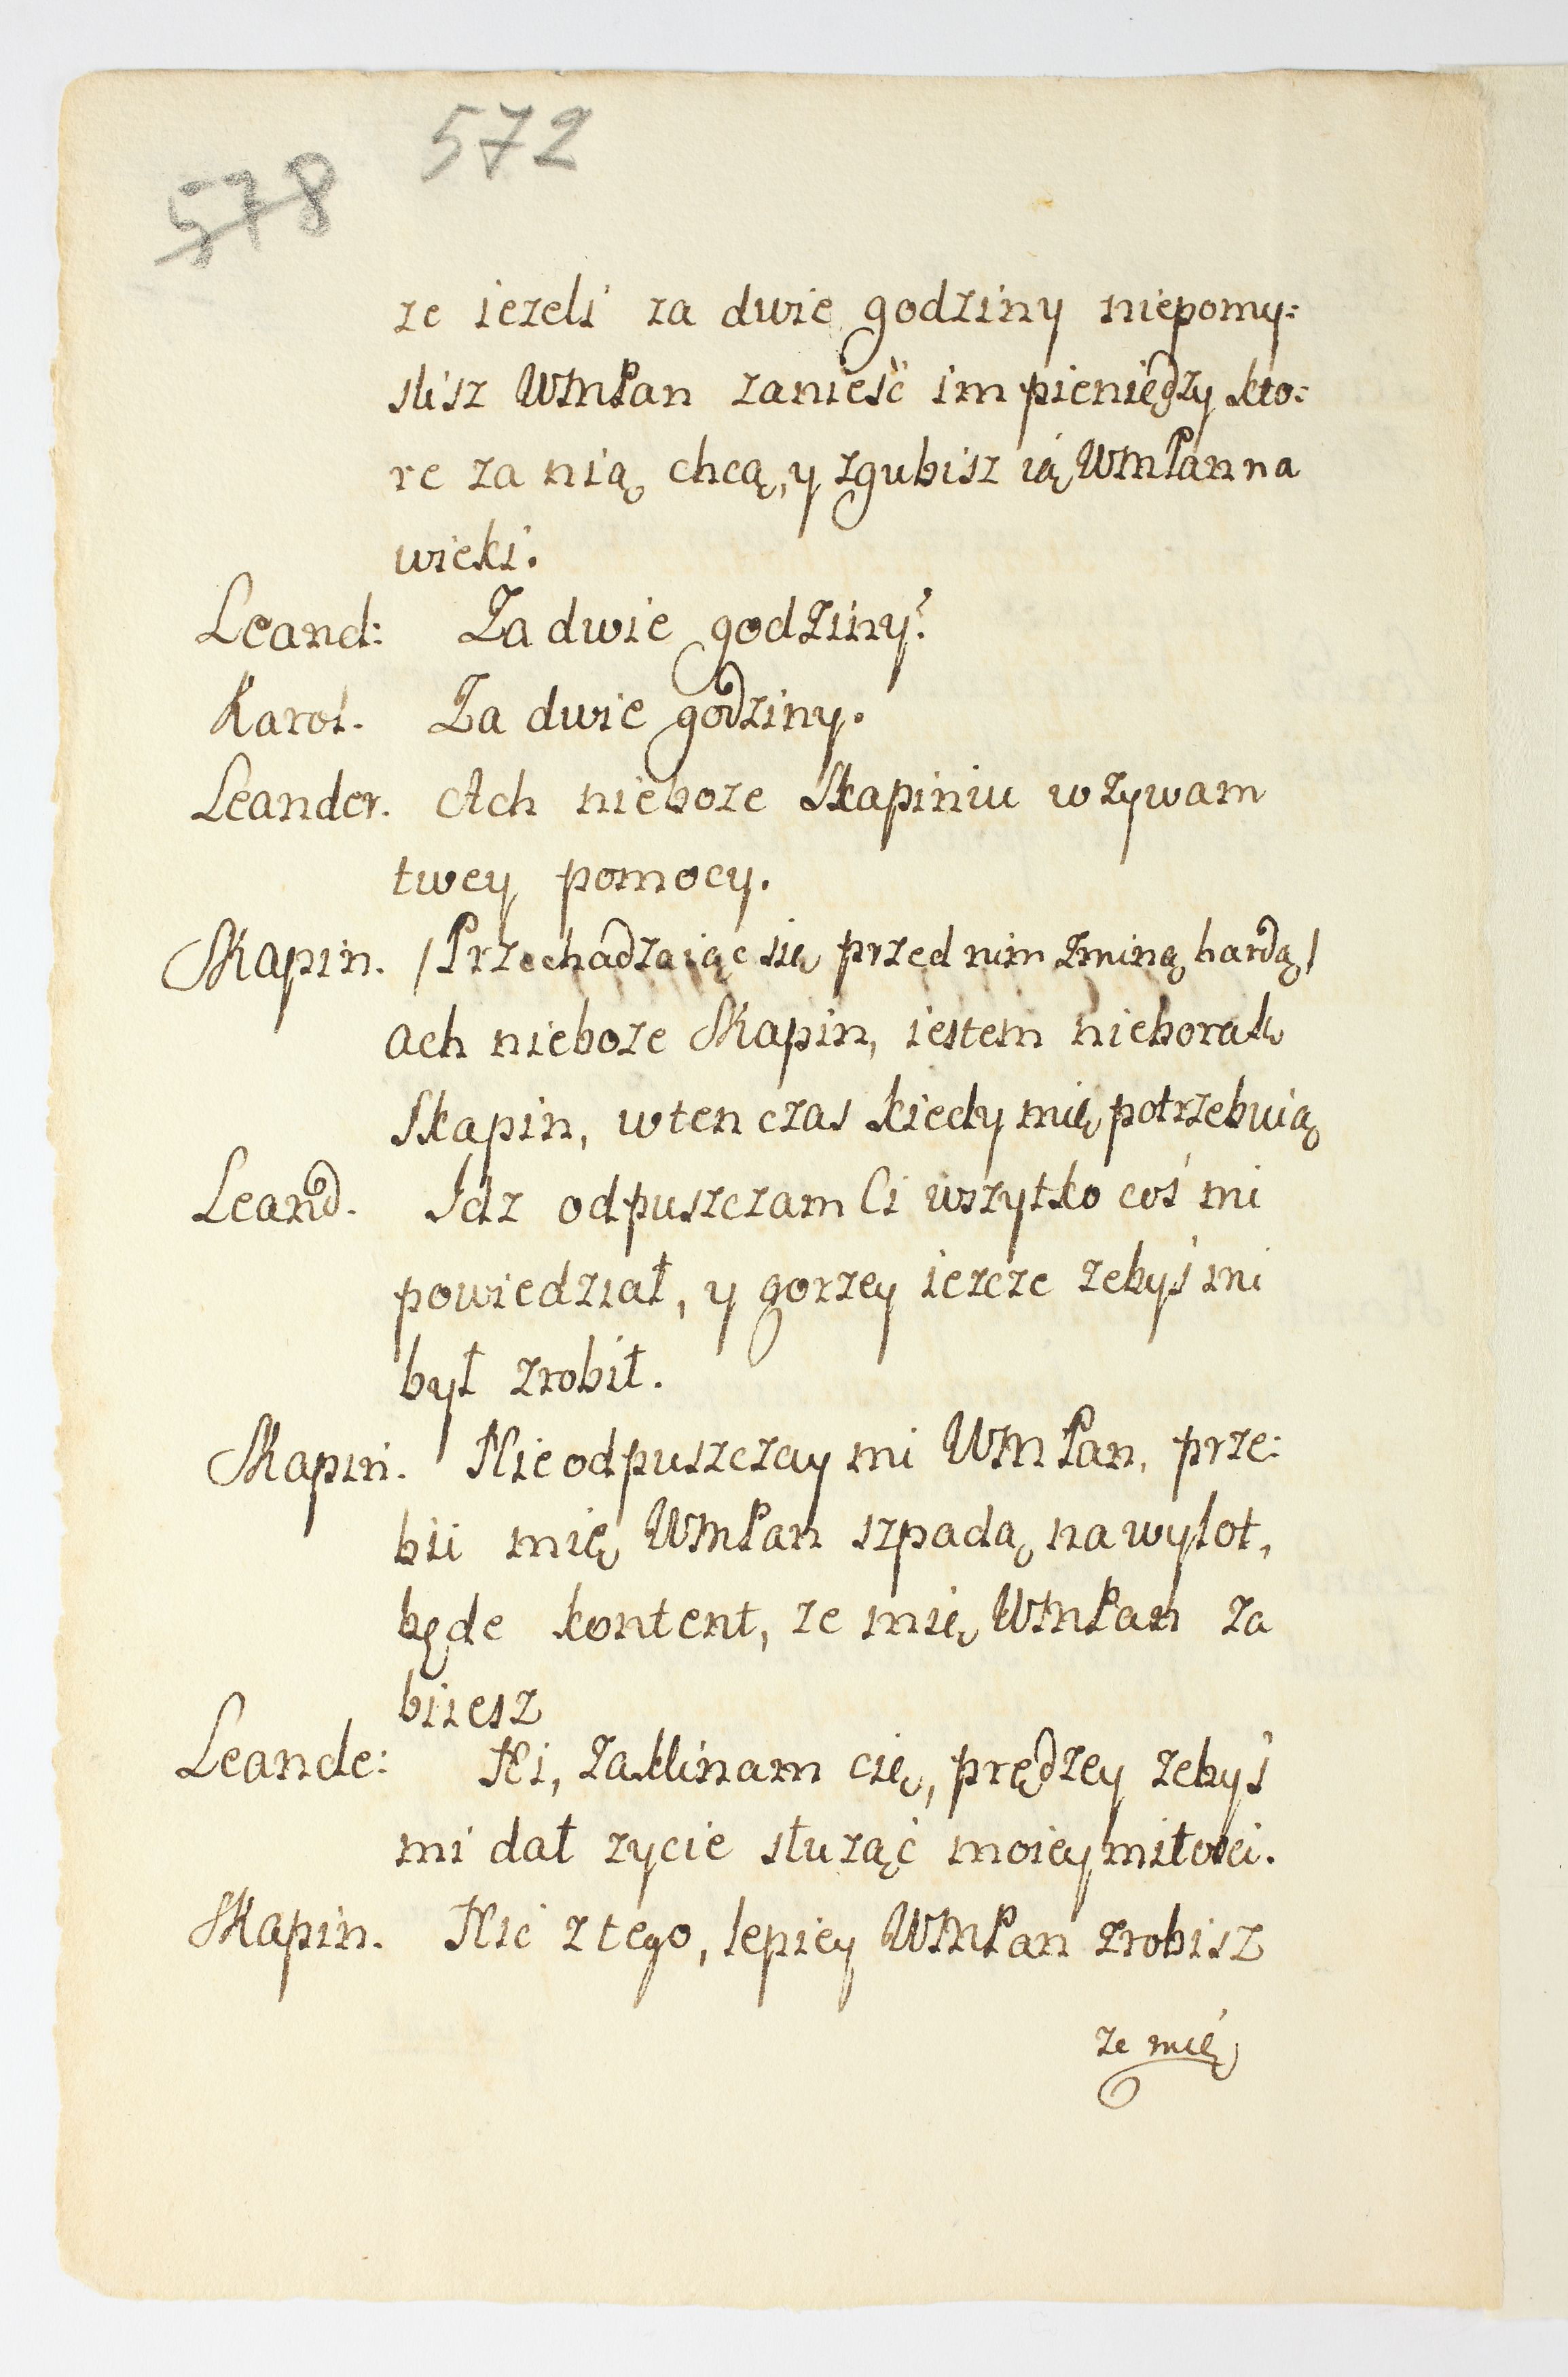 572
578
ze iezeli za dwie godziny niepomy:
slisz WMPan zanieść im pieniędzy kto:
re za nią chcą, y zgubisz ią WMPan na
wieki.
Leand: Za dwie godziny?
Karol. Za dwie godziny.
Leander. Ach nieboze Skapiniu wzywam
twey pomocy.
Skapin. /Przechadzaiąc się przed nim zminą hardą/
Ach nieboze Skapin, iestem nieborak
Skapin, wten czas kiedy mię potrzebuią
Leand. Idz odpuszczam Ci wszytko coś mi
powiedział, y gorzey iezcze zebyś mi
był zrobił.
Skapin. Nie odpuszczay mi WMPan, prze:
bii mię WMPan szpadą na wylot,
będe kontent, ze mię WMPan za
biiesz
Leande: Ni, zaklinam cię, prędzey zebyś
mi dał zycie słuząć moiey miłosci.
Skapin. Nic z tego, lepiey WMPan zrobisz
ze mię